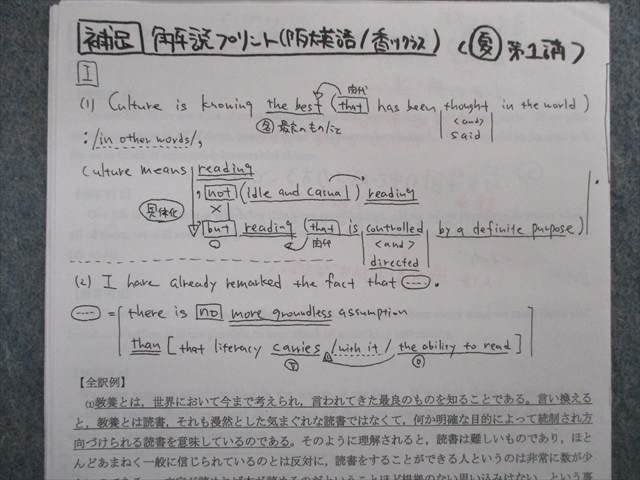 補足 解説プリント(阪大英語/香川クラス) 〈夏 第1講〉
I
(1) Culture is knowing the best (that has been thought in the world)
関代
<and>
said
名 最高のもの/こと
: /in other words/,
Culture means reading
, not (idle and casual) reading
具体化
×
but reading (that is controlled by a definite purpose)
○
関代
<and>
directed
(2) I have already remarked the fact that ....
.... = there is no more groundless assumption
than [that literacy carries /with it/ the ability to read]
Ⓥ Ⓞ
【全訳例】
(1)教養とは、世界において今まで考えられ、言われてきた最良のものを知ることである。言い換える
と、教養とは読書、それも漫然とした気まぐれな読書ではなくて、何か明確な目的によって統制され方
向づけられる読書を意味しているのである。そのように理解されると、読書は難しいものであり、ほと
んどあまねく一般に信じられているのとは反対に、読書をすることができる人というのは非常に数が少